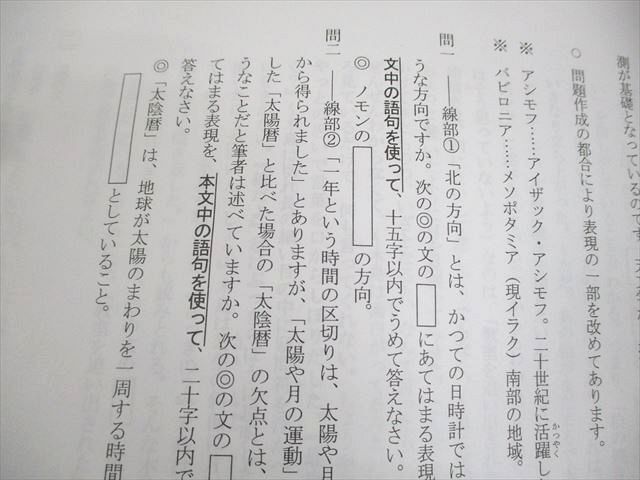 測が基礎となっているのです。
○ 問題作成の都合により表現の一部を改めてあります。
※ アシモフ……アイザック・アシモフ。二十世紀に活躍し
かつやく
※ バビロニア……メソポタミア（現イラク）南部の地域。
問一 ――線部①「北の方向」とは、かつての日時計では
うな方向ですか。次の◎の文の□にあてはまる表現
文中の語句を使って、十五字以内でうめて答えなさい。
◎ ノモンの□の方向。
問二 ――線部②「一年という時間の区切りは、太陽や月
から得られました」とありますが、「太陽や月の運動」
した「太陽暦」と比べた場合の「太陰暦」の欠点とは、
うなことだと筆者は述べていますか。次の◎の文の□
てはまる表現を、本文中の語句を使って、二十字以内で
答えなさい。
◎「太陰暦」は、地球が太陽のまわりを一周する時間
□としていること。